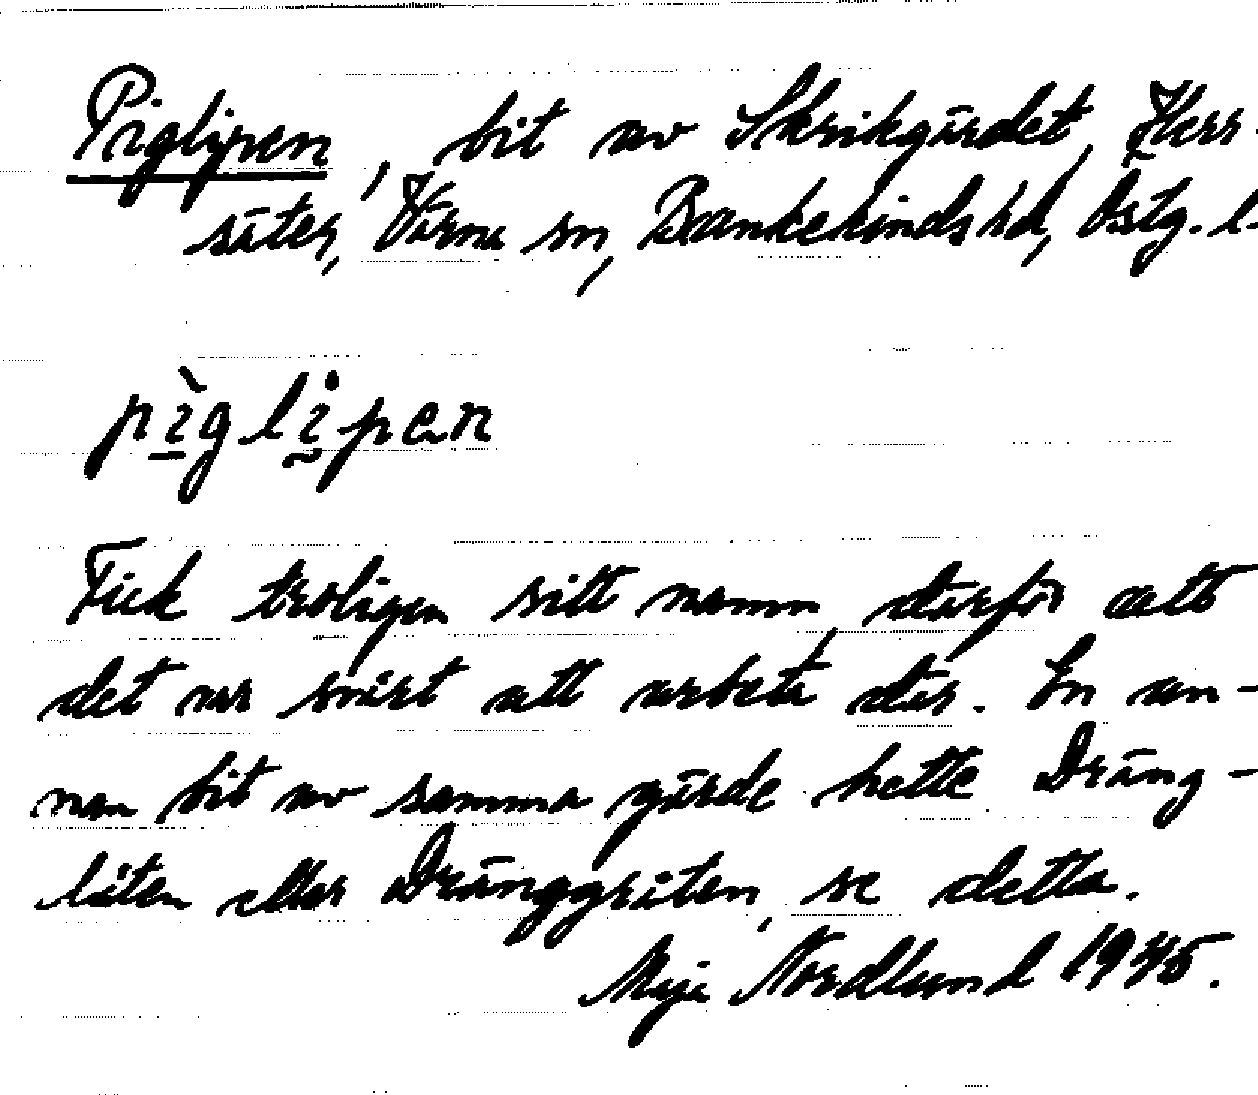 Piglipen, bit av Skrikgärdet, Herr-
säter, Värna sn, Bankekinds hd, Östg. l.
pìglipen
Fick troligen sitt namn, därför att
det var svårt att arbeta där. En an-
nan bit av samma gärde hette Dräng-
låten eller Dränggråten, se detta.
Maja Nordlund 1945.